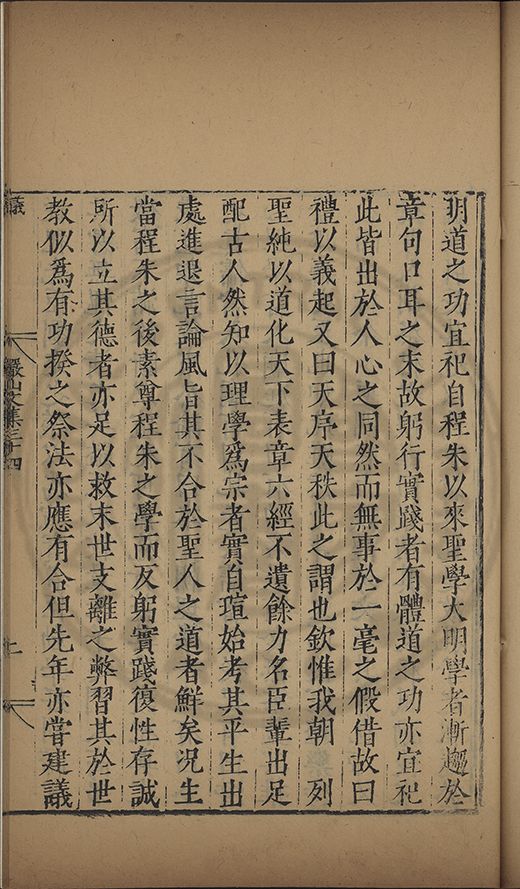 明道之功宜祀自程朱以來聖學大明學者漸趨於
章句口耳之末故躬行實踐者有體道之功亦宜祀
此皆出於人心之同然而無事於一毫之假借故曰
禮以義起又曰天序天秩此之謂也欽惟我朝 列
聖純以道化天下表章六經不遺餘力名臣輩出足
配古人然知以理學爲宗者實自瑄始考其平生出
處進退言論風旨其不合於聖人之道者鮮矣况生
當程朱之後素尊程朱之學而反躬實踐復性存誠
所以立其德者亦足以救末世支離之弊習其於世
教似爲有功揆之祭法亦應有合但先年亦嘗建議
議
儼山文集